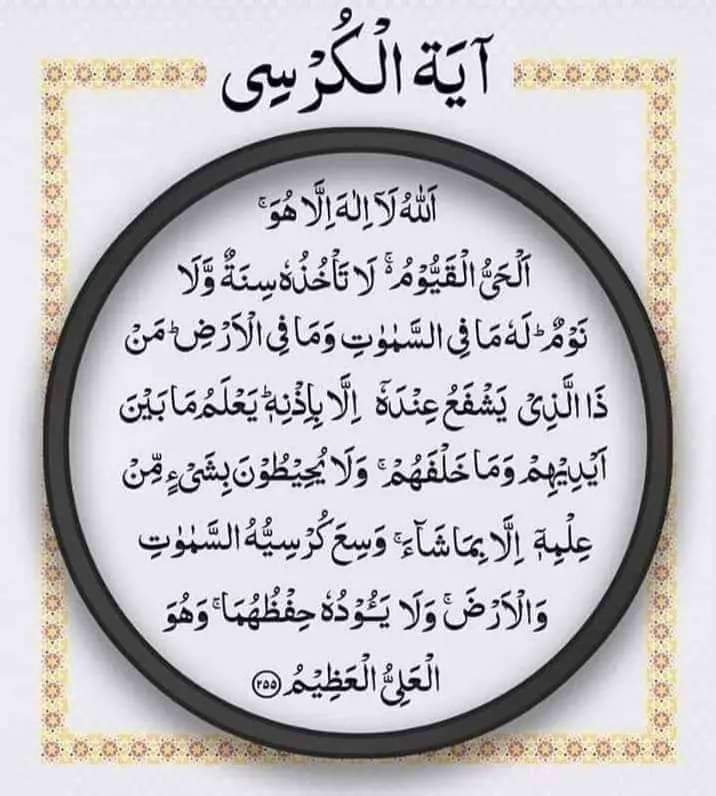 آيَة الْكُرْسِى
اَللّٰهُ لَاۤ اِلٰهَ اِلَّا هُوَ ۚ
اَلْحَىُّ الْقَيُّوْمُ ۚ لَا تَاْخُذُهٗ سِنَةٌ وَّلَا
نَوْمٌ ؕ لَهٗ مَا فِى السَّمٰوٰتِ وَمَا فِى الْاَرْضِ ؕ مَنْ
ذَا الَّذِىْ يَشْفَعُ عِنْدَهٗۤ اِلَّا بِاِذْنِهٖ ؕ يَعْلَمُ مَا بَيْنَ
اَيْدِيْهِمْ وَمَا خَلْفَهُمْ ۚ وَلَا يُحِيْطُوْنَ بِشَىْءٍ مِّنْ
عِلْمِهٖۤ اِلَّا بِمَا شَآءَ ۚ وَسِعَ كُرْسِيُّهُ السَّمٰوٰتِ
وَالْاَرْضَ ۚ وَلَا يَـُٔوْدُهٗ حِفْظُهُمَا ۚ وَهُوَ
الْعَلِىُّ الْعَظِيْمُ ﴿۲۵۵﴾